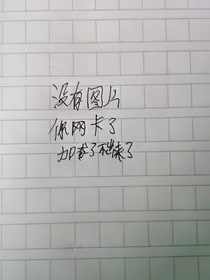 没有图片
你网卡了
加载了不出来了